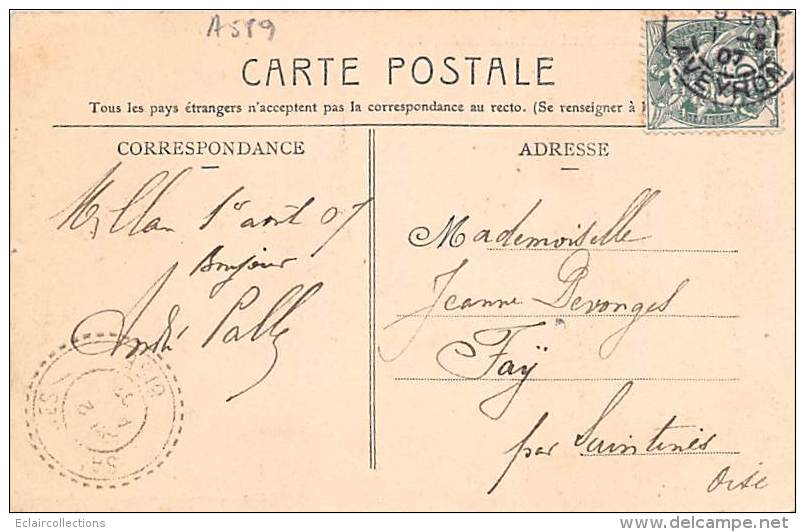 A589
CARTE POSTALE
Tous les pays étrangers n'acceptent pas la correspondance au recto. (Se renseigner à l
CORRESPONDANCE
ADRESSE
Millau 1er août 07
Bonjour
André
Mademoiselle
Jeanne Devonges
Faÿ
par Saintines
Oise
07
AVEYRON
OISE
Eclaircollections
www.delcampe.net